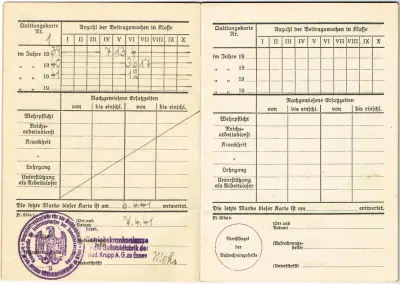 Quittungskarte
Nr.
1
Anzahl der Beitragswochen in Klasse
I II III IV V VI VII VIII IX X
im Jahre 19 39 7 13
„ „ 19 40
„ „ 19 41 12
„ „ 19
Nachgewiesene Ersatzzeiten
von bis einschl. von bis einschl.
Wehrpflicht
Reichs-
arbeitsdienst
Krankheit
Lehrgang
Unterstützung
als Arbeitsloser
Die letzte Marke dieser Karte ist am 6.4.41 entwertet.
(Ort und
Datum)
Essen,
Betriebskrankenkasse
der Gußstahlfabrik der
Fried. Krupp A. G. zu Essen
(Unterschrift)
Quittungskarte
Nr.
Anzahl der Beitragswochen in Klasse
I II III IV V VI VII VIII IX X
im Jahre 19
„ „ 19
„ „ 19
„ „ 19
Nachgewiesene Ersatzzeiten
von bis einschl. von bis einschl.
Wehrpflicht
Reichs-
arbeitsdienst
Krankheit
Lehrgang
Unterstützung
als Arbeitsloser
Die letzte Marke dieser Karte ist am entwertet.
(Ort und
Datum)
Dienstsiegel
der
Ausrechnungsstelle
(Aufrechnungs-
stelle)
(Unterschrift)